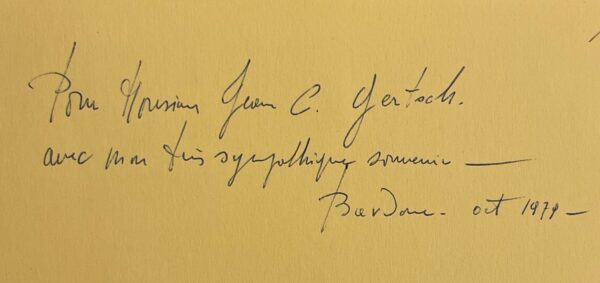 Pour Monsieur Jean C. Gertsch.
avec mon très sympathique souvenir —
oct 1979 —